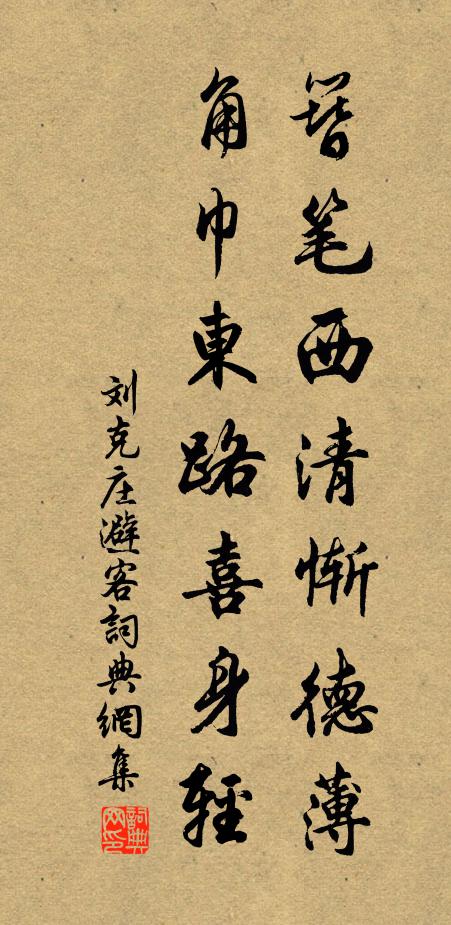 簪笔西清惭德薄
角巾東路喜身輕
刘克庄避客詞典網集
詞典网印